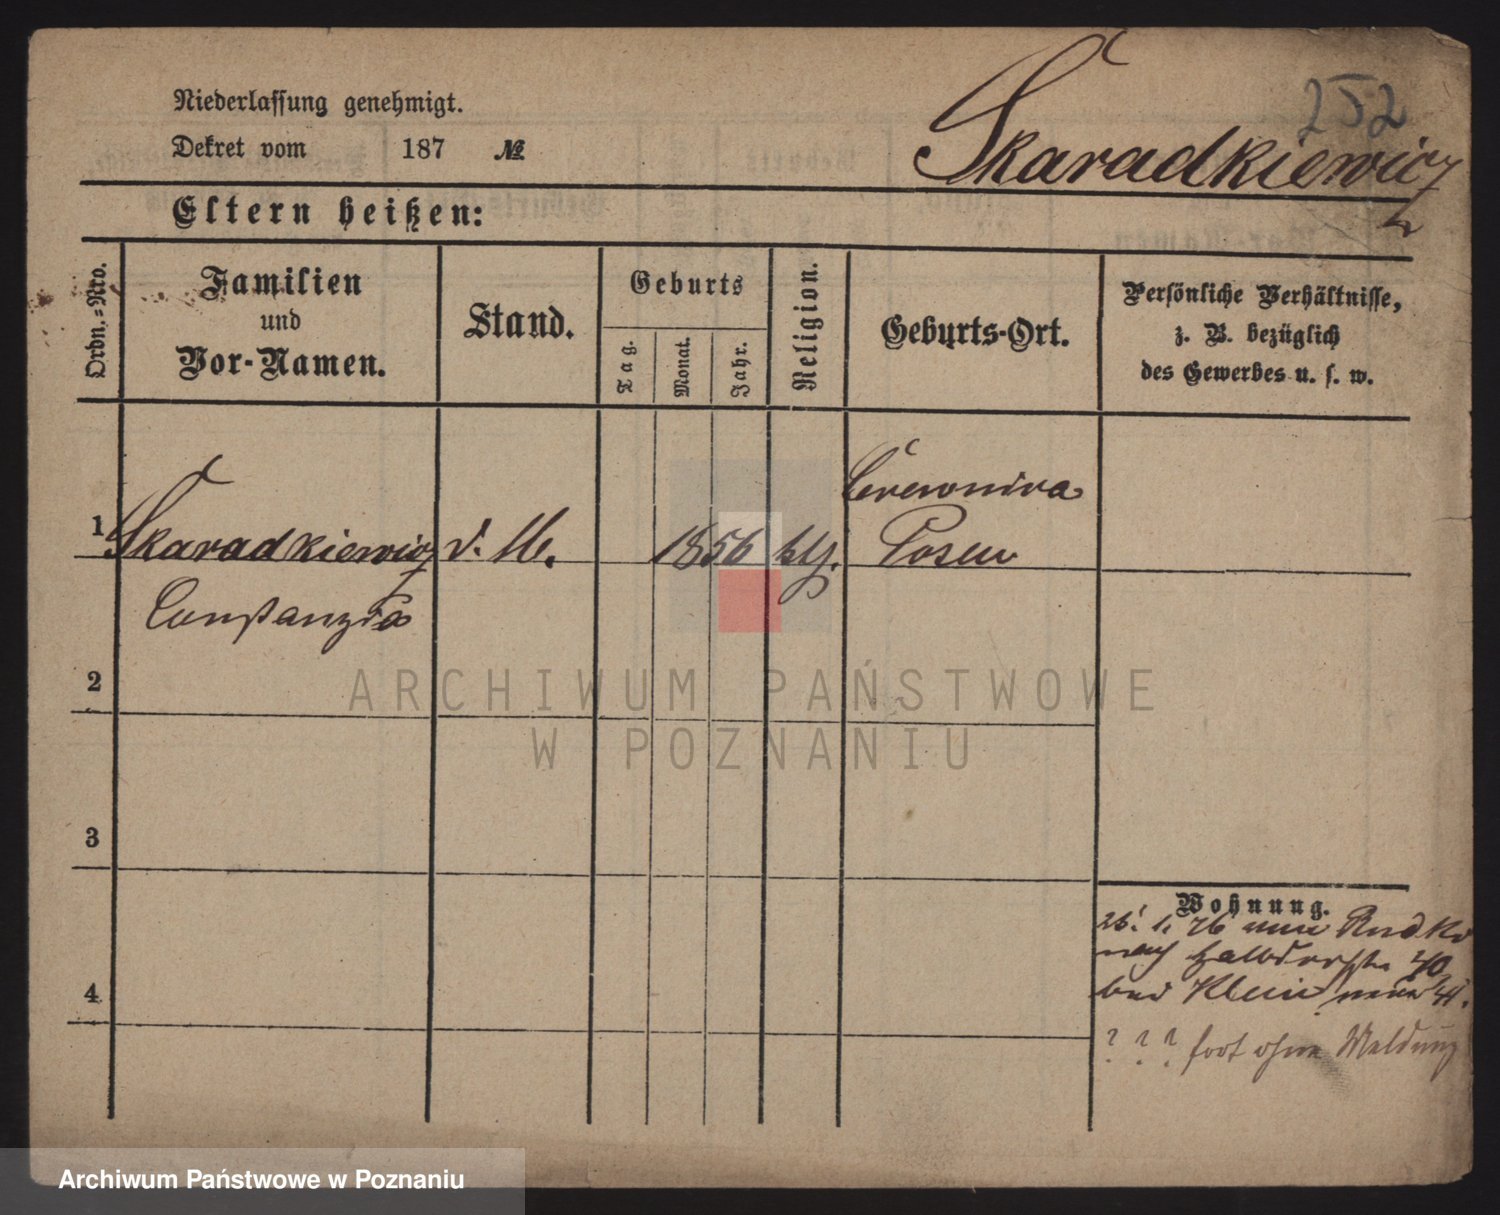 252
Skaradkiewicz
Niederlassung genehmigt.
Dekret vom 187 №
Eltern heißen:
Ordn.-Nro.
Familien
und
Vor-Namen.
Stand.
Geburts
Tag.
Monat.
Jahr.
Religion.
Geburts-Ort.
Persönliche Verhältnisse,
z. B. bezüglich
des Gewerbes u. s. w.
1 Skaradkiewicz d. M. 1856 kth. Czerwonka
Posen
Constanzia
2
3
4
Wohnung.
26. 1. 76
nach Halbdorfstr 40
bei Klein
? ? ? fort ohne Meldung
ARCHIWUM PAŃSTWOWE
W POZNANIU
Archiwum Państwowe w Poznaniu